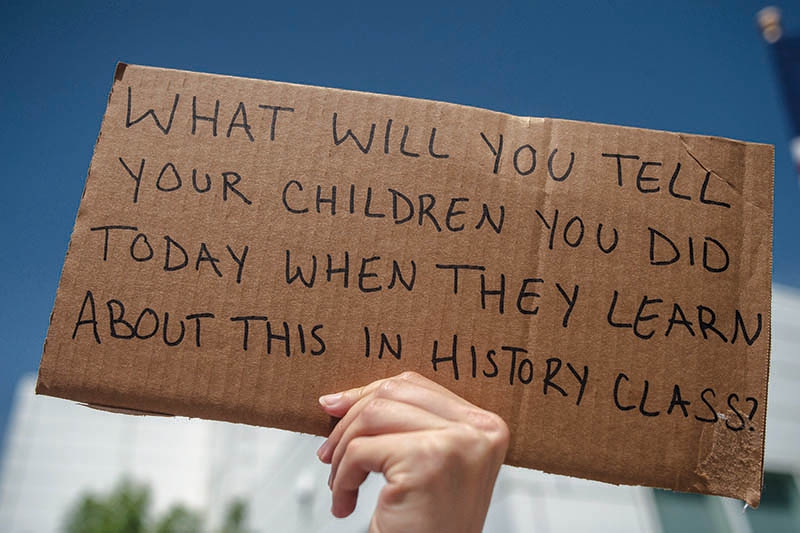 WHAT WILL YOU TELL
YOUR CHILDREN YOU DID
TODAY WHEN THEY LEARN
ABOUT THIS IN HISTORY CLASS?